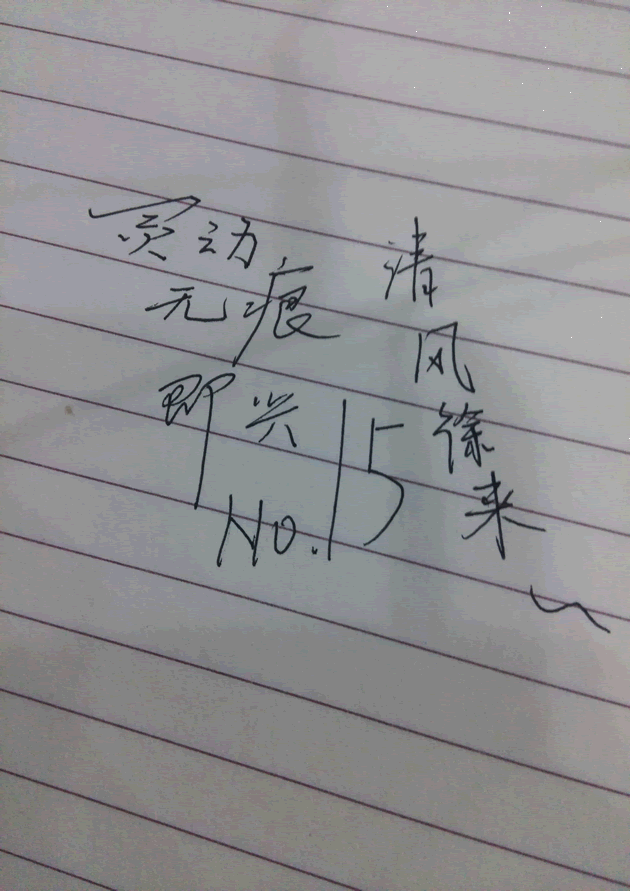 灵动
无痕
即兴
No.15
清风徐来~